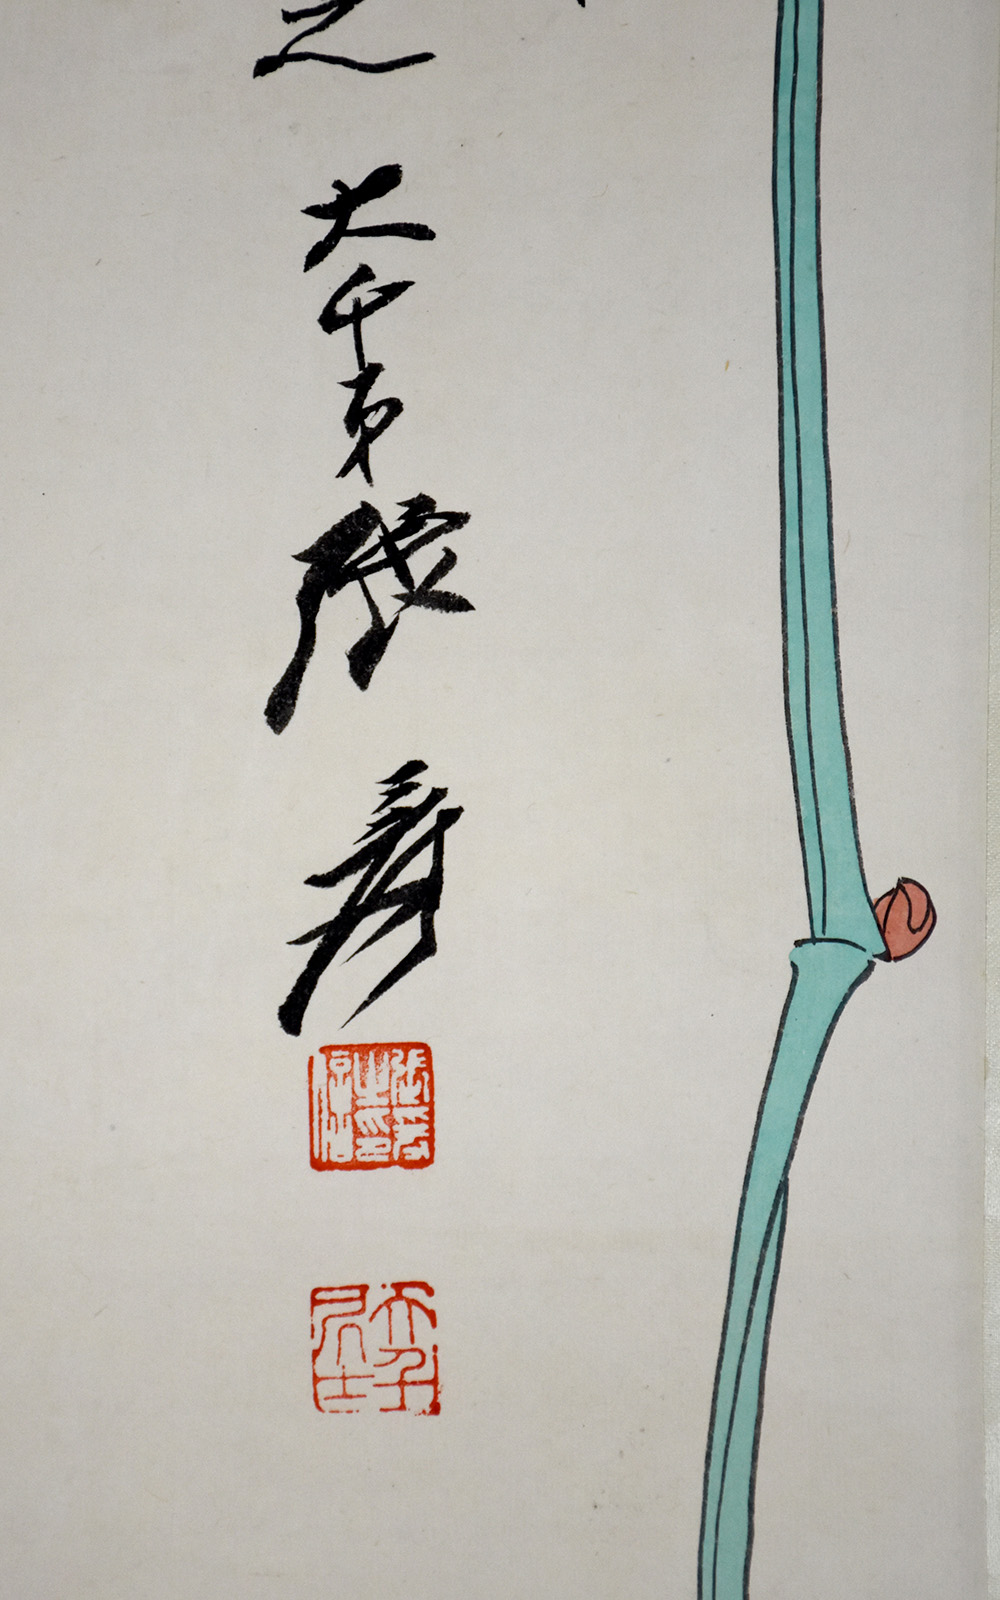 之
大千弟張爰
張爰之印信
大千居士